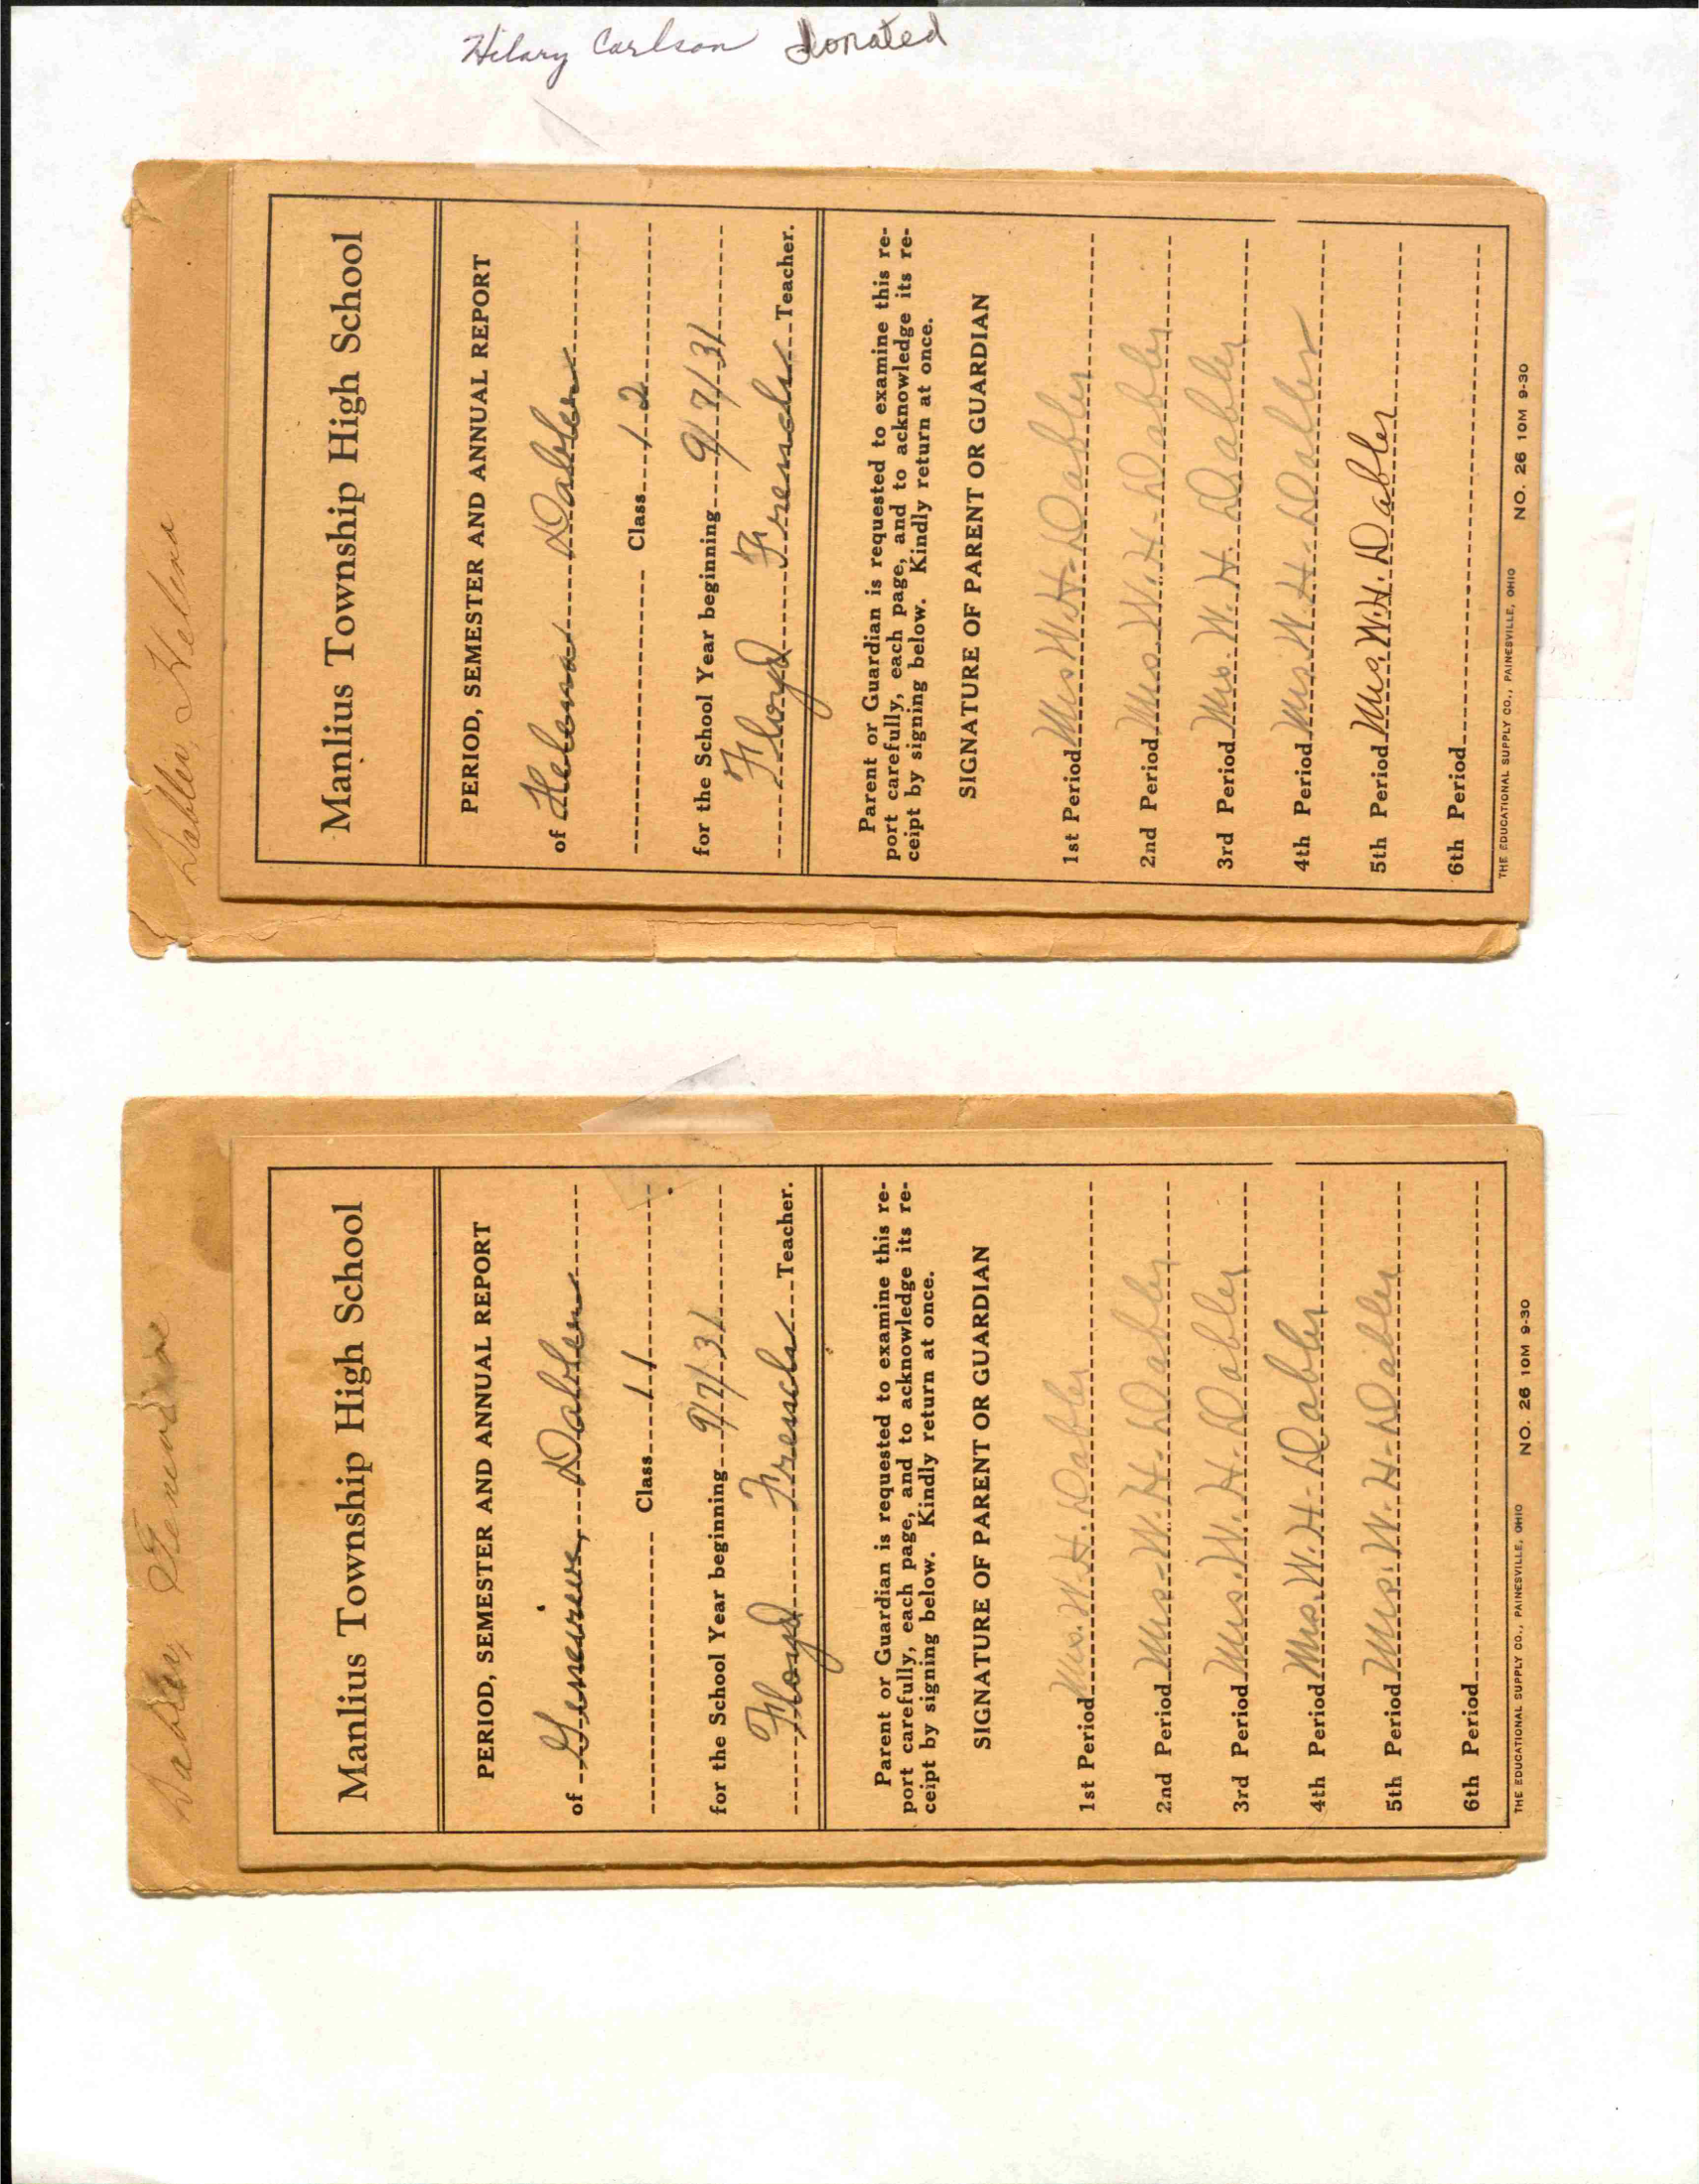 Hilary Carlson donated
Dabler, Helena
Manlius Township High School
PERIOD, SEMESTER AND ANNUAL REPORT
of Helena Dabler
Class 12
for the School Year beginning 9/7/31
Floyd French Teacher.
Parent or Guardian is requested to examine this re-
port carefully, each page, and to acknowledge its re-
ceipt by signing below. Kindly return at once.
SIGNATURE OF PARENT OR GUARDIAN
1st Period Mrs W. H. Dabler
2nd Period Mrs. W. H. Dabler
3rd Period Mrs. W. H. Dabler
4th Period Mrs. W. H. Dabler
5th Period Mrs. W. H. Dabler
6th Period
THE EDUCATIONAL SUPPLY CO., PAINESVILLE, OHIO NO. 26 10M 9-30
Dabler, Genevieve
Manlius Township High School
PERIOD, SEMESTER AND ANNUAL REPORT
of Genevieve Dabler
Class 11
for the School Year beginning 9/7/31
Floyd French Teacher.
Parent or Guardian is requested to examine this re-
port carefully, each page, and to acknowledge its re-
ceipt by signing below. Kindly return at once.
SIGNATURE OF PARENT OR GUARDIAN
1st Period Mrs. W. H. Dabler
2nd Period Mrs. W. H. Dabler
3rd Period Mrs. W. H. Dabler
4th Period Mrs. W. H. Dabler
5th Period Mrs. W. H. Dabler
6th Period
THE EDUCATIONAL SUPPLY CO., PAINESVILLE, OHIO NO. 26 10M 9-30